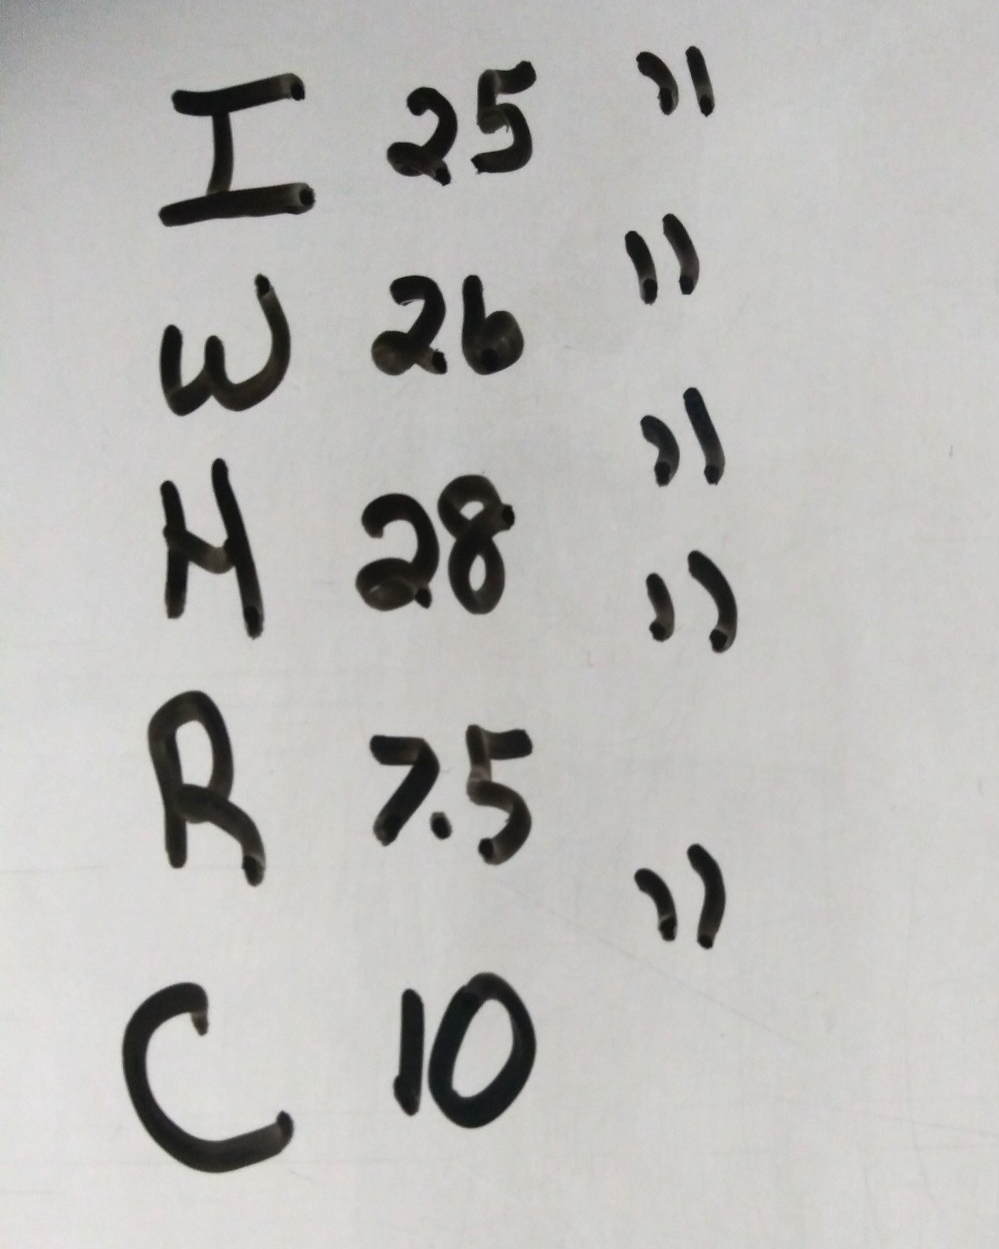 I 25 "
W 26 "
H 28 "
R 7.5 "
C 10 "